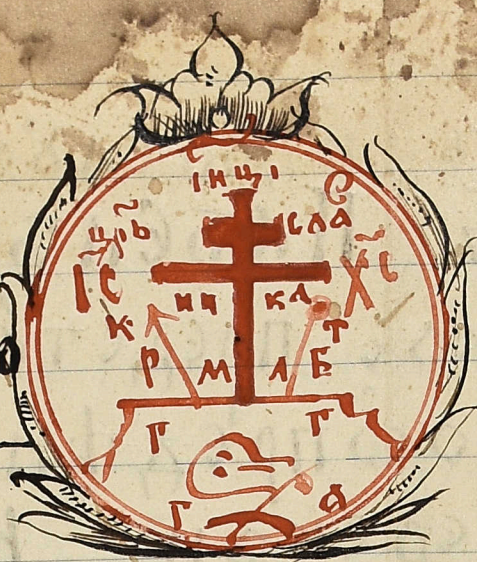 ІНЦІ
цр҃ь сла
І҃С Х҃С
ни ка
К Т
Р М Л Б
Г Г
Г А